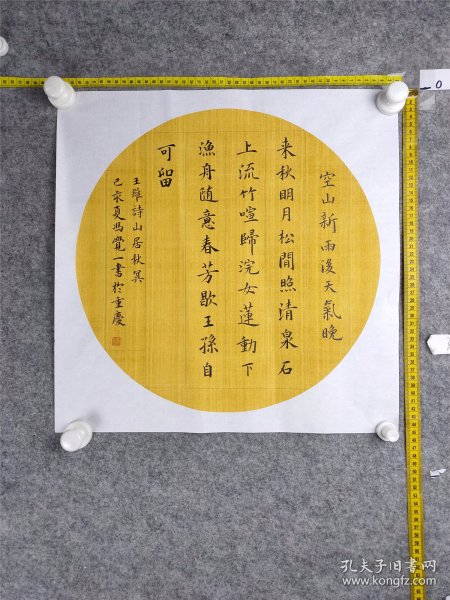 空山新雨後天氣晚
来秋明月松間照清泉石
上流竹喧歸浣女蓮動下
漁舟随意春芳歇王孫自
可留
王維詩山居秋冥
己亥夏冯覺一書於重慶
0
孔夫子旧书网
www.kongfz.com